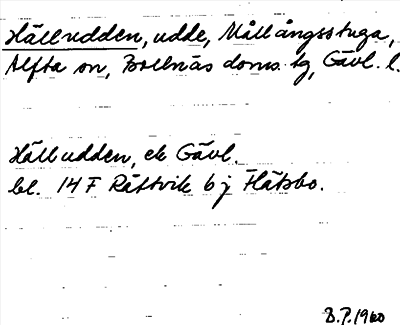 Hälludden, udde, Mållångsstuga,
Alfta sn, Bollnäs doms. tg, Gävl. l.
Hälludden, ek Gävl.
bl. 14 F Rättvik 6 j Flätsbo.
B.P. 1960